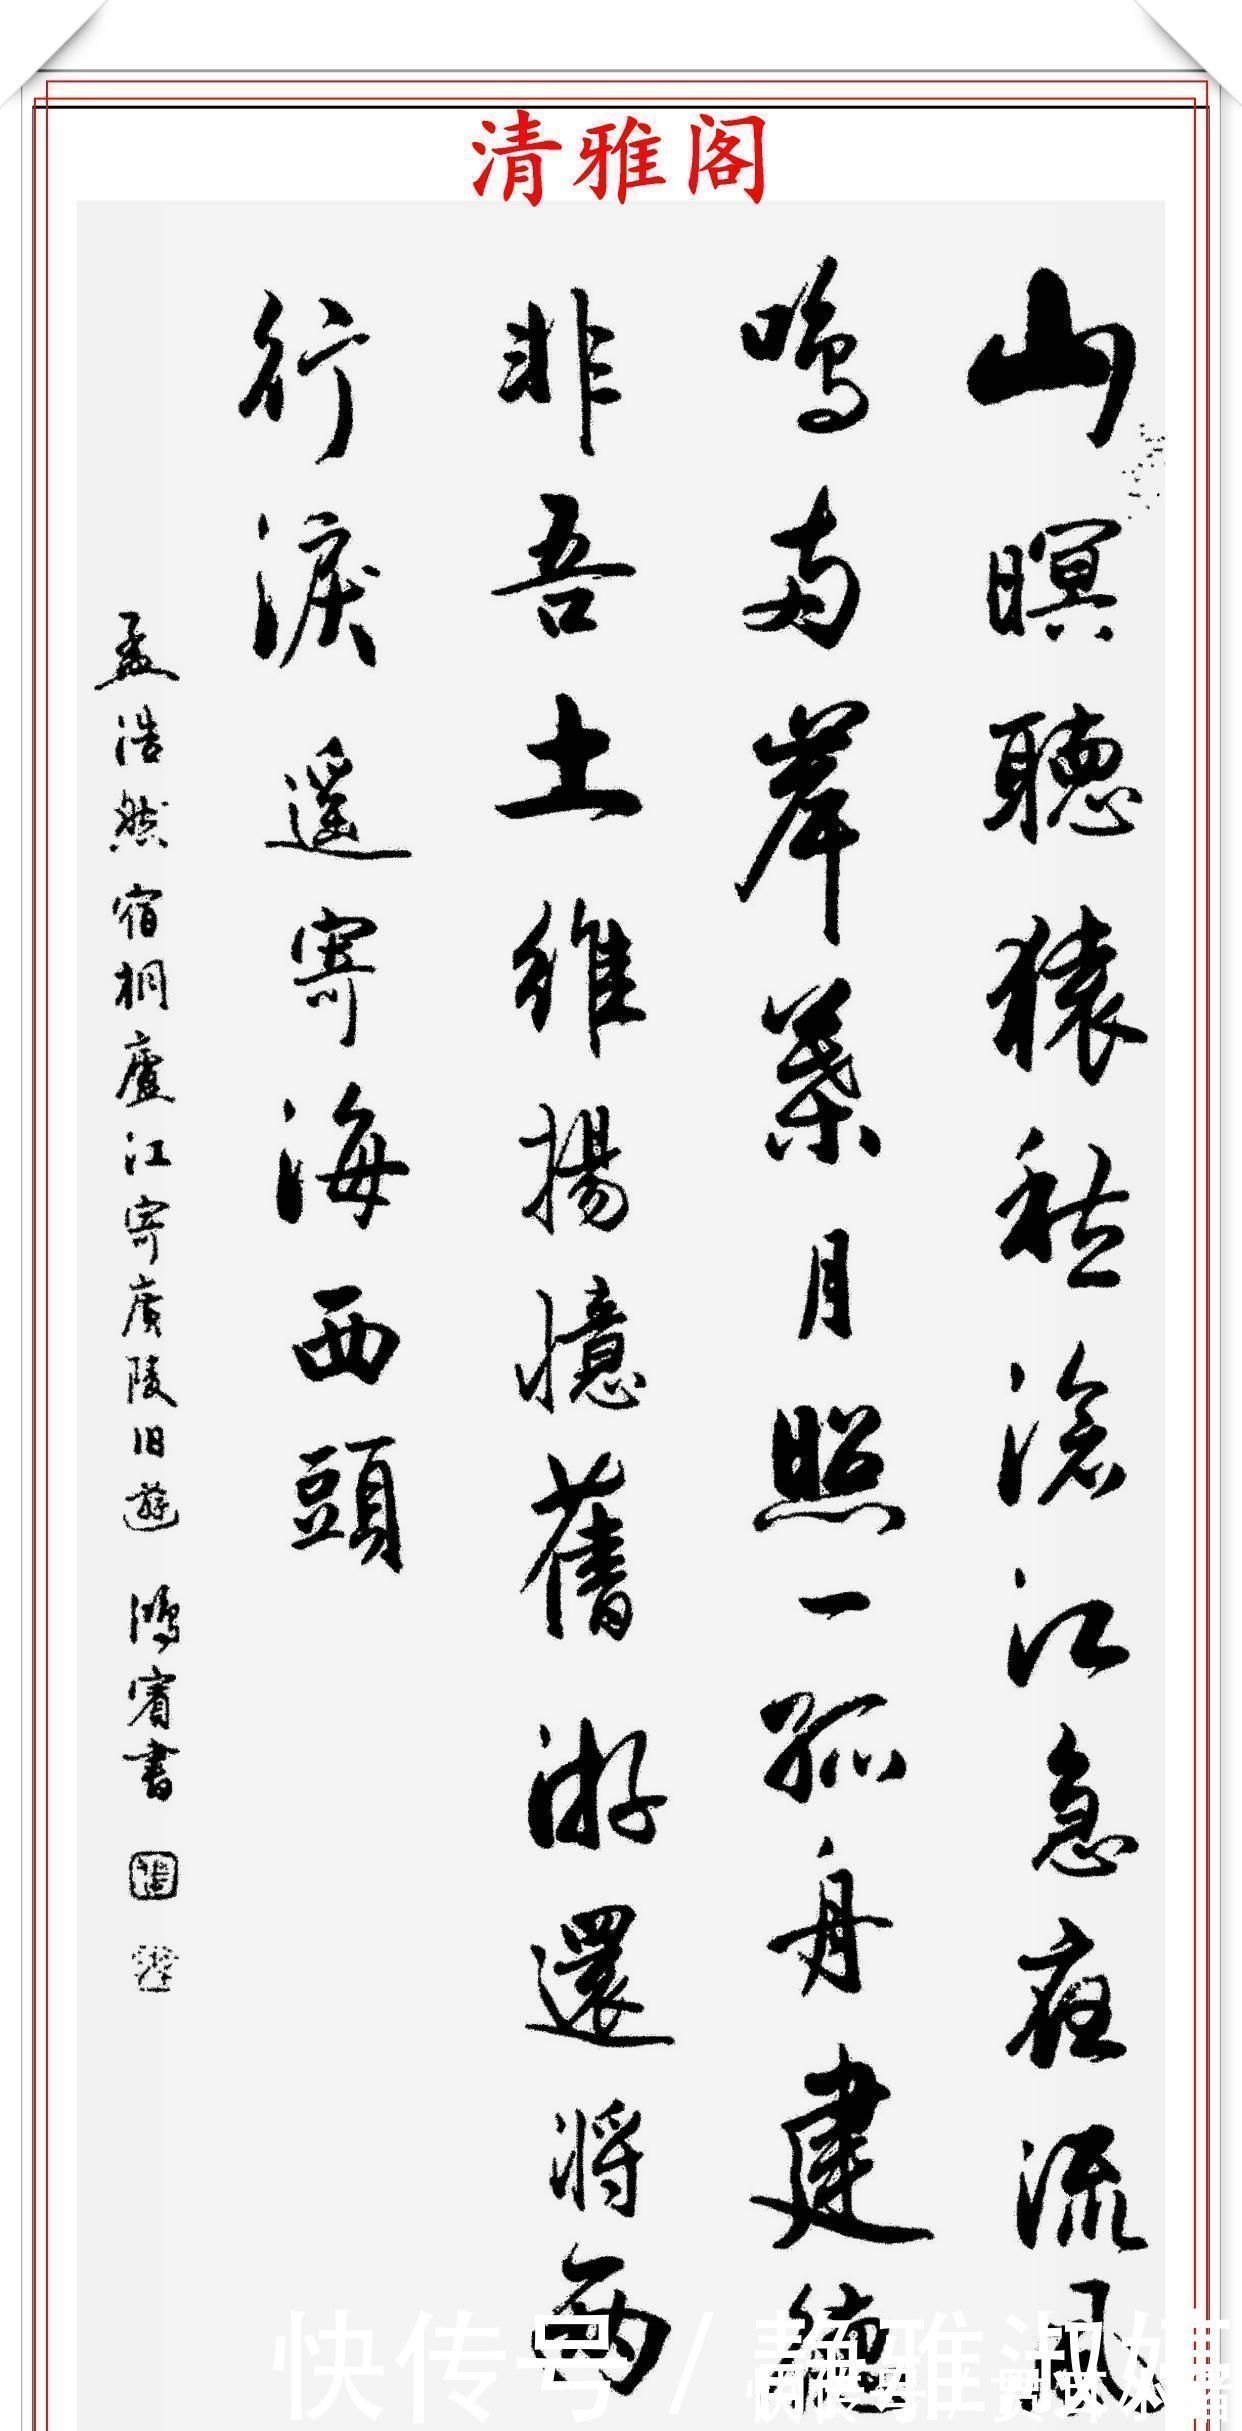 清雅阁
山暝聽猿愁滄江急夜流風
鳴兩岸葉月照一孤舟建德
非吾土維揚憶舊游還將兩
行淚遥寄海西頭
孟浩然宿桐廬江寄廣陵旧遊 鴻賓書
快传号/静雅淑婧